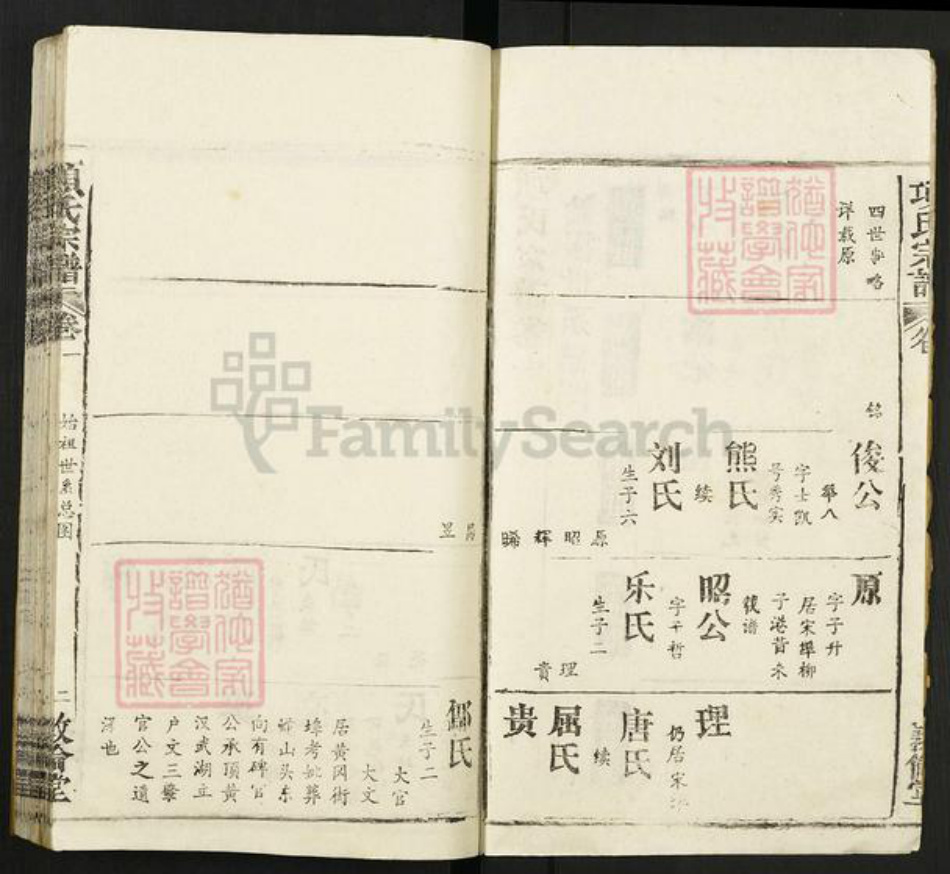 项氏宗谱
四世事略
详载原
铭
俊公
举八
字士凯
号秀实
熊氏
续
刘氏
生子六
原 昭 辉 晞
昌 昱
原
字子升
居宋埠柳
子港昔未
復谱
昭公
字子哲
乐氏
生子二
理 贵
理
仍居宋埠
唐氏
续
屈氏
贵
邹氏
生子二
大官
大文
居黄冈街
埠考妣葬
蟒山头东
向有碑官
公承顶黄
汉武湖立
户文三繁
官公之遗
泽也
项氏宗谱
卷一
始祖世系总图
二
敦伦堂
猶他家譜學會收藏
猶他家譜學會收藏
FamilySearch